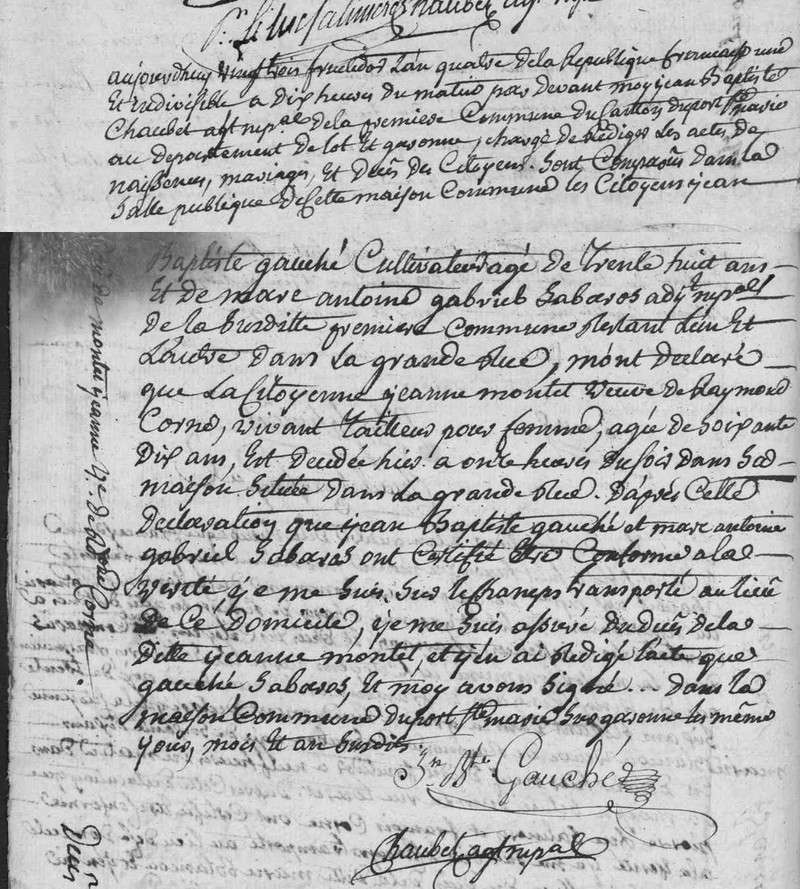 aujourdhuy vingt trois fructidor L'an quatre de la Republique francaise une
Et indivisible a dix heures du matin par devant moy jean Baptiste
Chaubet agt mpal de la premiere Commune du Canton du port Ste marie
au departement de lot Et garonne, chargé de Rediger Les actes de
naissences, mariages, Et décès des Citoyens. Sont Comparus dans la
Salle publique de Cette maison Commune les Citoyens jean
Baptiste gauché Cultivateur agé de Trente huit ans
Et de marc antoine gabriel Sabaros adjt mpal
de la Surditte premiere Commune Restant L'un Et
L'autre dans La grande Rue, m'ont declaré
que La Citoyenne jeanne montet Veuve de Raymond
Corne, vivant Tailleur pour femme, agée de Soixante
Dix ans, Est decedée hier a onze heures du soir dans Sa
maison Située dans La grande Rue. d'après Cette
declaration que jean Baptiste gauché et marc antoine
gabriel Sabaros ont Certifié Etre Conforme a la
verité je me suis Sur le champ transporté au lieu
de Ce domicile, je me suis assuré du décès de la
Ditte jeanne montet, et j'en ai Redigé l'acte que
gauché Sabaros, Et moy avons Signé ... dans la
maison Commune du port Ste marie Sur garonne Les même
jour, mois Et an Surdits
Jn Bte Gauché
Chaubet agt mpal
de montet jeanne Ve. de Rd Corne.
Décès